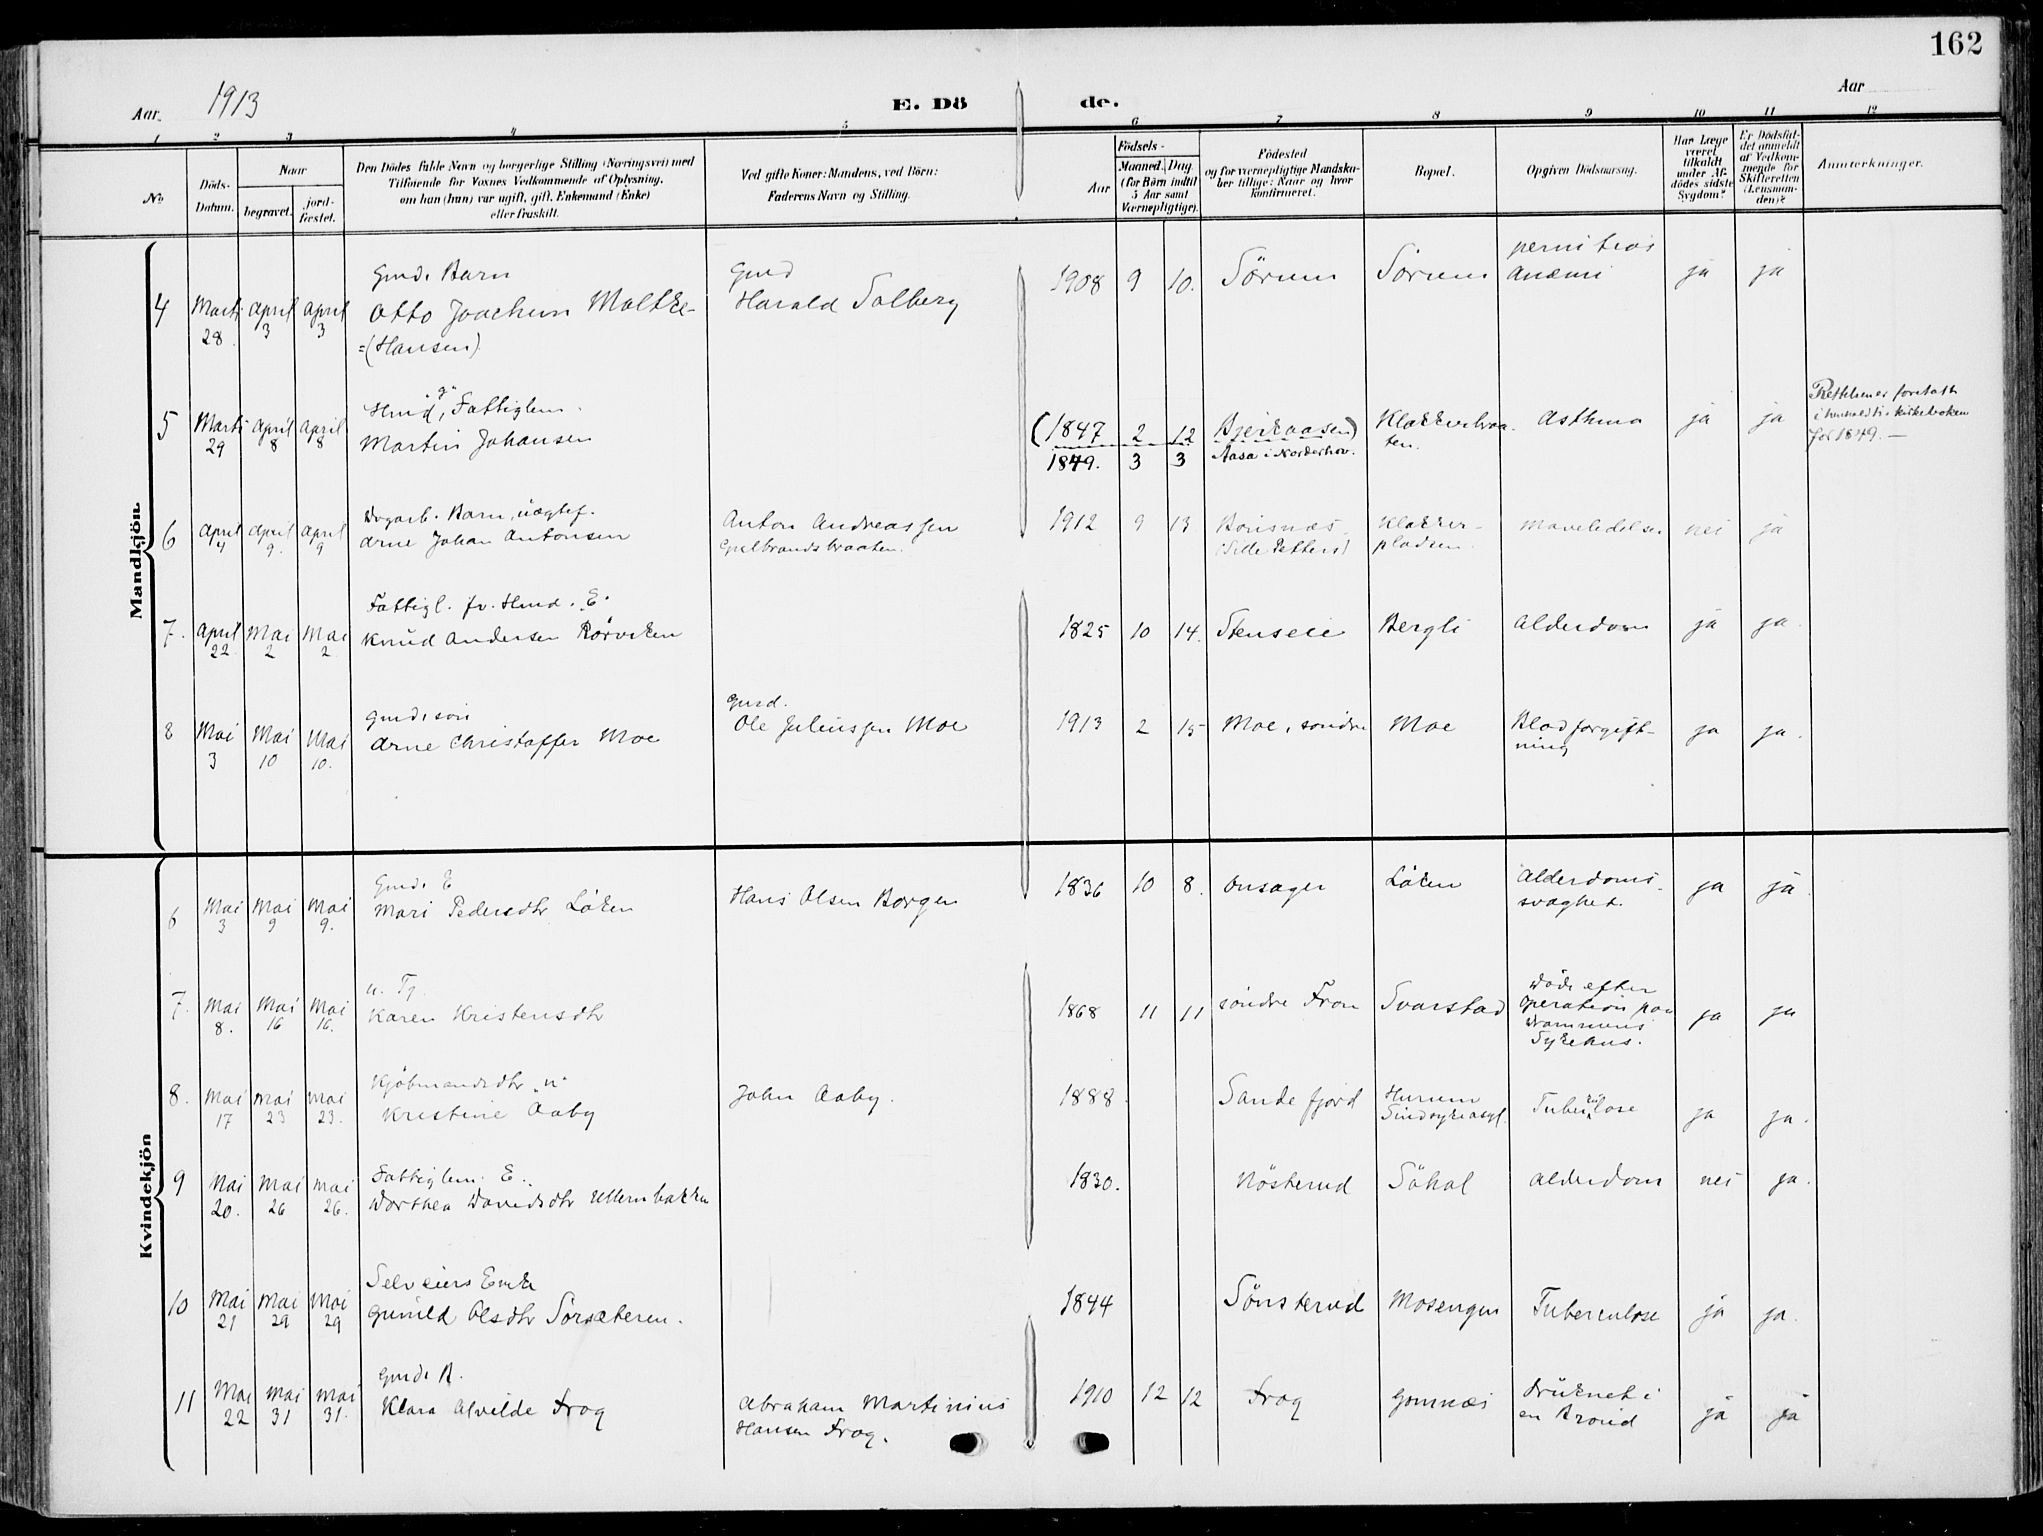 162
Aar 1913
E. Döde.
Aar
1 2 3 4 5 6 7 8 9 10 11 12
No.
Döds-Datum.
Naar
begravet.
jord-fæstet.
Den Dödes fulde Navn og borgerlige Stilling (Næringsvei) med
Tilföiende for Voxnes Vedkommende af Oplysning,
om han (hun) var ugift, gift, Enkemand (Enke)
eller fraskilt.
Ved gifte Koner: Mandens, ved Börn:
Faderens Navn og Stilling.
Födsels-
Aar
Maaned. Dag.
(for Börn indtil
5 Aar samt
Værnepligtige).
Födested
og for værnepligtige Mandska-
ber tillige: Naar og hvor
konfirmeret.
Bopæl.
Opgiven Dödsaarsag.
Har Læge
været
tilkaldt
under Af-
dödes sidste
Sygdom?
Er Dödsfal-
det anmeldt
af Vedkom-
mende for
Skifteretten
(Lensman-
den)?
Anmærkninger.
Mandkjön.
4 Marts 28 April 3 April 3 Gmds Barn Otto Joachim Moltke- =(Hansen) Gmd Harald Solberg 1908 9 10. Sörum Sörum pernitiøs Anæmi ja ja
5 Marts 29 April 8 April 8 Hmd, "g" Fattiglem. Martin Johansen (1847 2 12 Bjerkaasen) 1849. 3 3 Aasa i Norderhov. Klokkerbraaten. Asthma ja ja Rettelsener foretatt i henhold til kirkeboken for 1849. —
6 April 4 April 9. April 9 Dagarb. Barn, uægtef. Arne Johan Antonsen Anton Andreassen Gulbrandsbraaten. 1912 9 13 Bönsnæs (Sille Petters) Klokker-pladsen. Mavelidelse nei ja
7. April 22 Mai 2 Mai 2 Fattigl. fv. Hmd. "E" Knud Andersen Rörviken 1825 10 14. Stenseie Bergli Alderdom ja ja.
8 Mai 3 Mai 10 Mai 10. Gmds sön Arne Christoffer Moe Gmd. Ole Juliussen Moe 1913 2 15 Moe, söndre Moe Blodforgift-ning ja ja.
Kvindekjön
6 Mai 3 Mai 9 Mai 9. Gmds E Mari Pedersdtr Löken Hans Olsen Borgen 1836 10 8. Onsager Löken Alderdoms-svaghet. ja ja.
7. Mai 8. Mai 16 Mai 16. u. Tj. Karen Kristensdtr 1868 11 11 söndre Fron Svarstad Döde efter operation paa Drammens Sykehus. ja ja
8. Mai 17 Mai 23 Mai 23. Kjöbmandsdtr "u" Kristine Aaby John Aaby. 1888. Sandefjord Hurum Sindsykeasyl. Tuberkulose ja ja.
9 Mai 20. Mai 26 Mai 26. Fattiglem. E. Dorthea Davidsdtr Ullernbakken 1830. Nösterud Sökol Alderdom nei ja.
10 Mai 21 Mai 29 Mai 29 Selveiers Enke Gunild Olsdtr Sörsæteren. 1844 Sönsterud Mosengen Tuberculose ja ja.
11 Mai 22 Mai 31 Mai 31. Gmds B. Klara Alvilde Frog Abraham Martinius Hansen Frog. 1910 12 12 Frog Gomnæs druknet i en Brönd ja ja